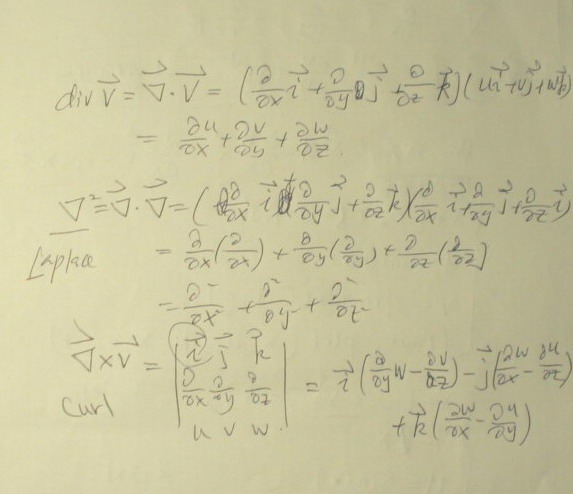 div V⃗ = ∇⃗ · V⃗ = (∂/∂x i⃗ + ∂/∂y j⃗ + ∂/∂z k⃗)(ui⃗ + vj⃗ + wk⃗)
= ∂u/∂x + ∂v/∂y + ∂w/∂z.
∇² = ∇⃗ · ∇⃗ = (∂/∂x i⃗ + ∂/∂y j⃗ + ∂/∂z k⃗)(∂/∂x i⃗ + ∂/∂y j⃗ + ∂/∂z i⃗)
Laplace = ∂/∂x(∂/∂x) + ∂/∂y(∂/∂y) + ∂/∂z(∂/∂z)
= ∂²/∂x² + ∂²/∂y² + ∂²/∂z²
∇⃗ × V⃗ = | i⃗ j⃗ k⃗ | = i⃗(∂/∂y w - ∂v/∂z) - j⃗(∂w/∂x - ∂u/∂z)
curl | ∂/∂x ∂/∂y ∂/∂z | + k⃗(∂w/∂x - ∂u/∂y)
| u v w |